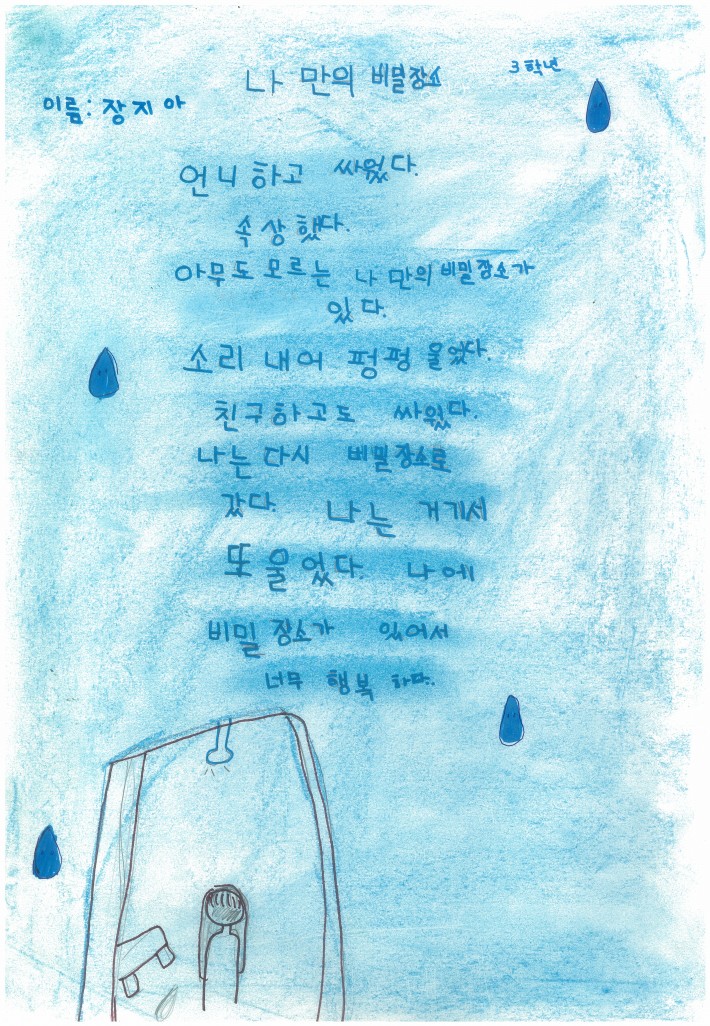 나 만의 비밀장소
3학년
이름: 장지아
언니하고 싸웠다.
속상했다.
아무도 모르는 나만의 비밀장소가
있다.
소리 내어 펑펑 울었다.
친구하고도 싸웠다.
나는 다시 비밀장소로
갔다. 나는 거기서
또 울었다. 나에
비밀 장소가 있어서
너무 행복 하다..